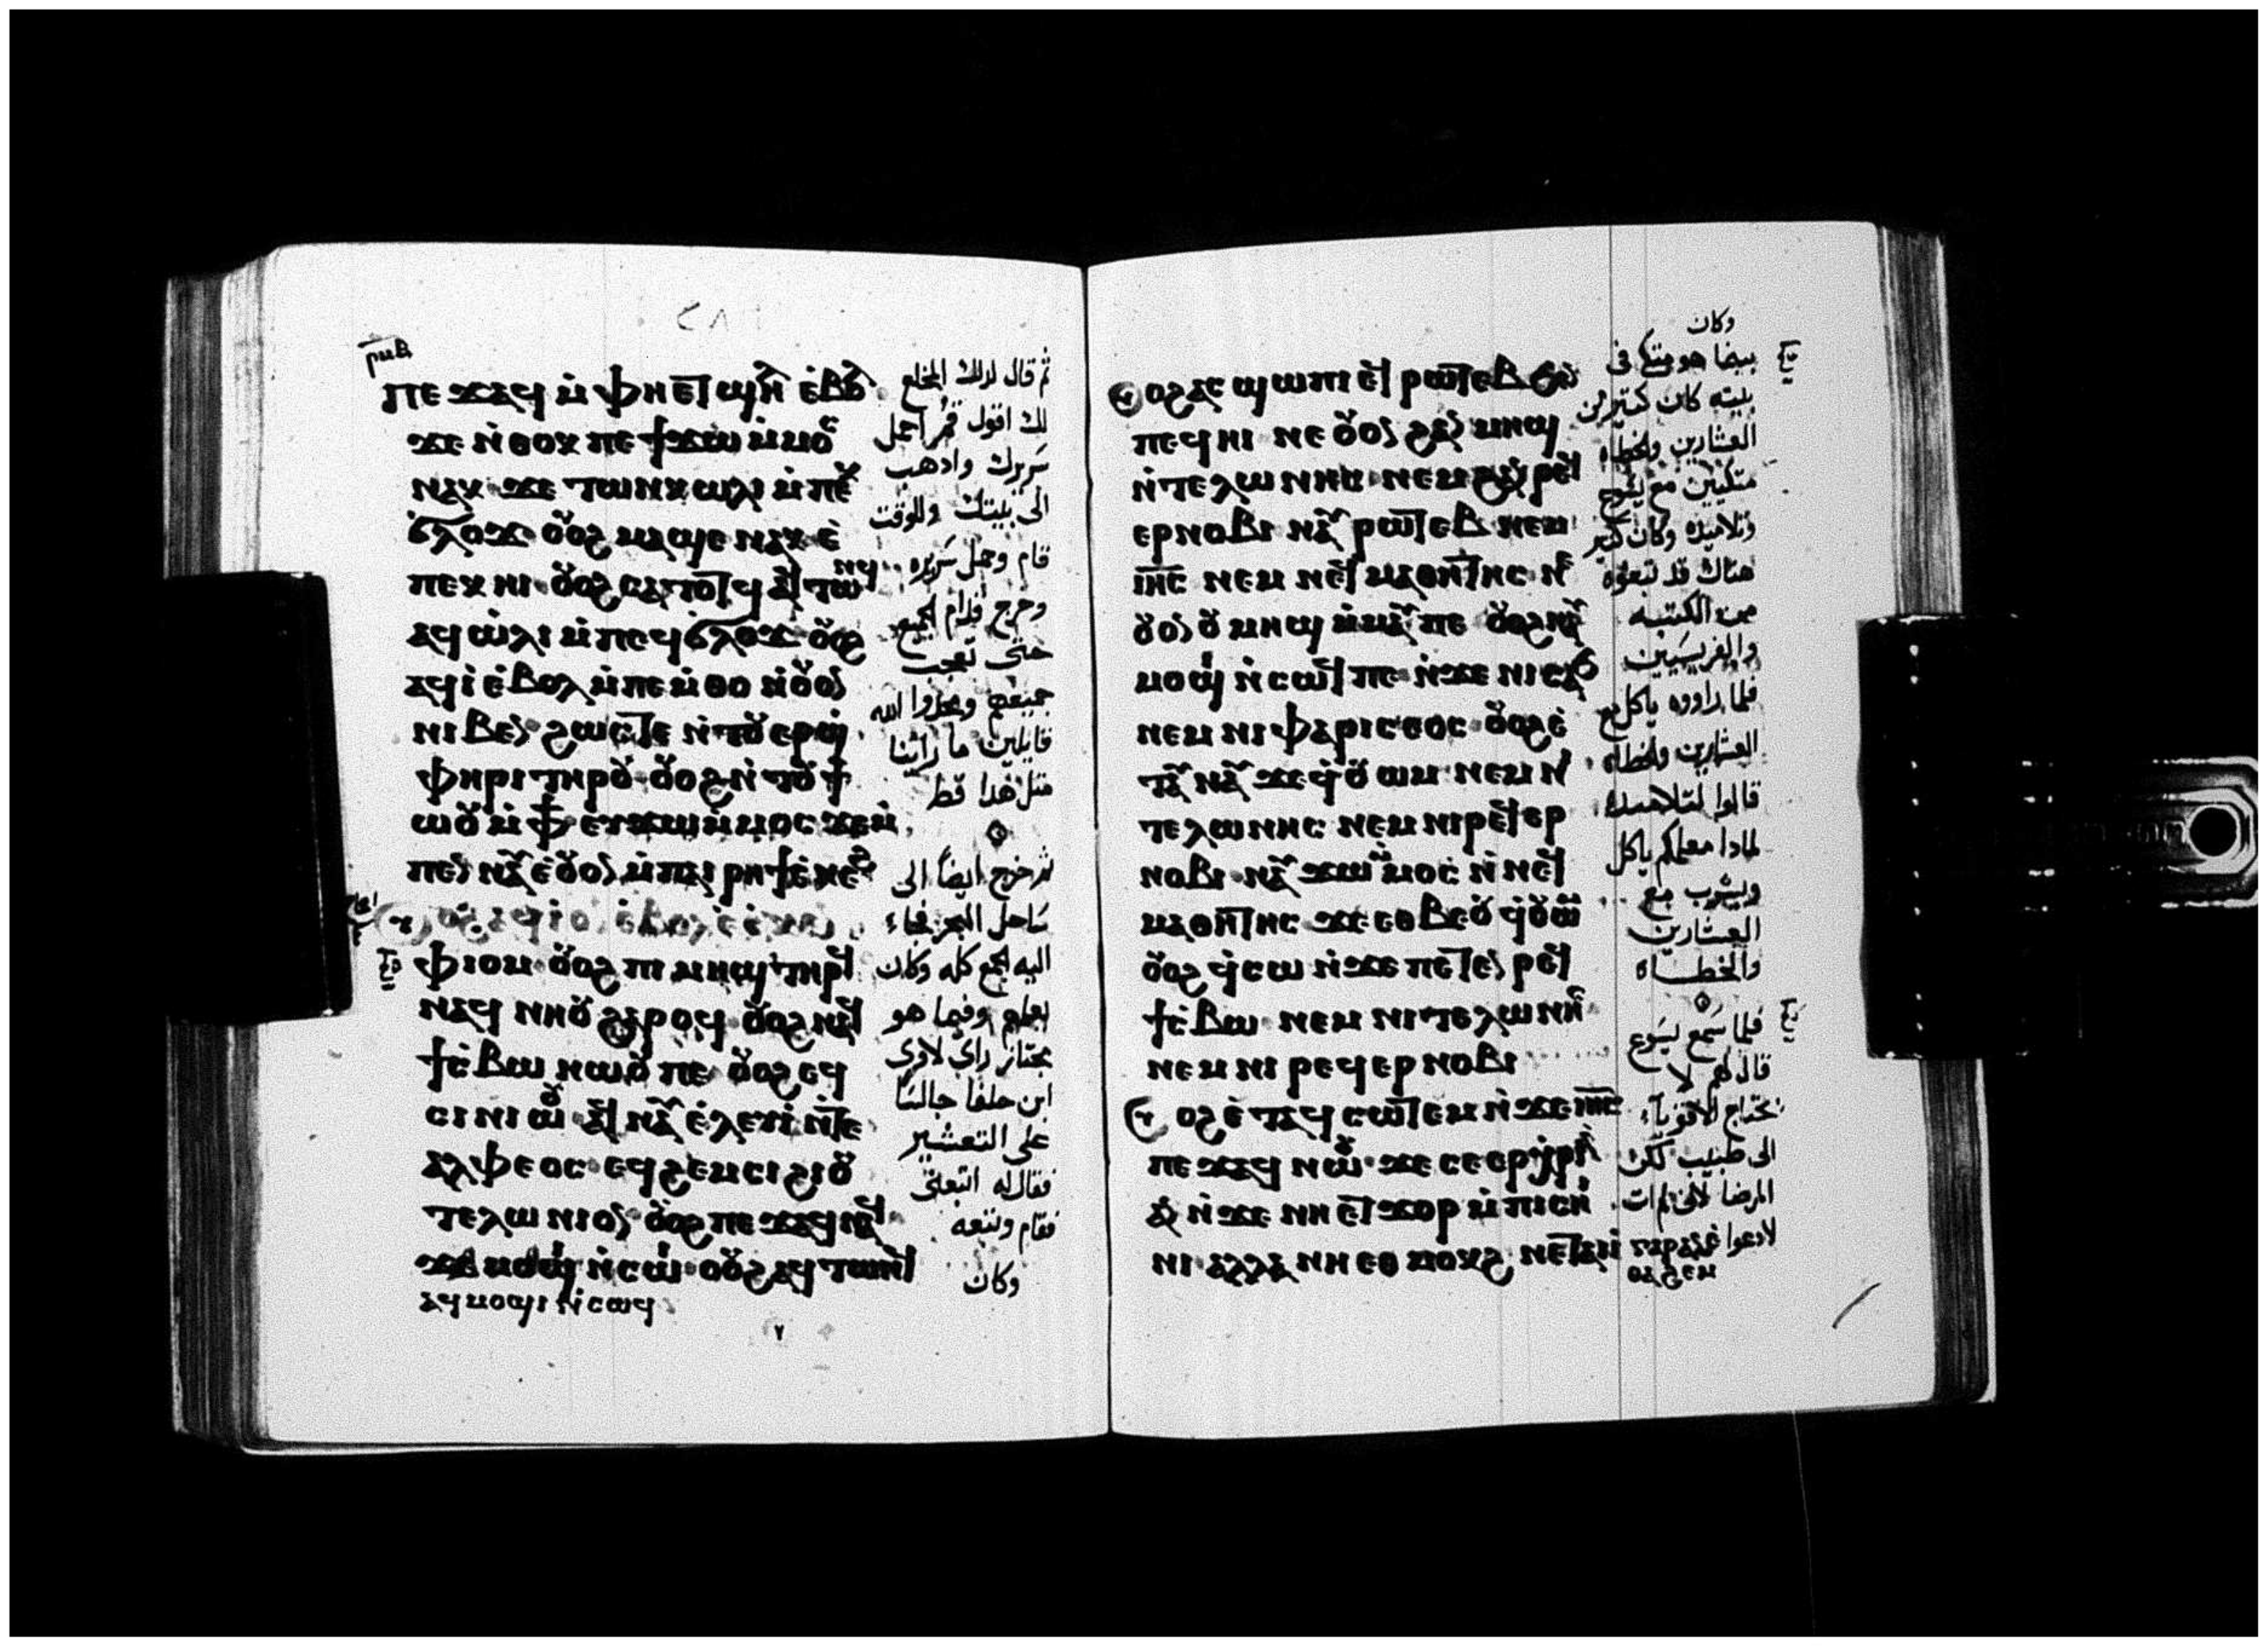 ⲣⲙⲃ
ⲡⲉϫⲁϥ ⲙ̀ⲫⲏⲉⲧϣⲏⲗ ⲉ̀ⲃⲟⲗ
ϫⲉ ⲛ̀ⲑⲟⲕ ⲡⲉϯϫⲱ ⲙ̀ⲙⲟⲥ
ⲛⲁⲕ ϫⲉ ⲧⲱⲛⲕ ⲱⲗⲓ ⲙ̀ⲡⲉⲕ
ϭⲗⲟϫ ⲟⲩⲟϩ ⲙⲁϣⲉ ⲛⲁⲕ ⲉ̀
ⲡⲉⲕⲏⲓ ⲟⲩⲟϩ ⲥⲁⲧⲟⲧϥ ⲁϥⲧⲱⲛϥ
ⲁϥⲱ̀ⲗⲓ ⲙ̀ⲡⲉϥϭⲗⲟϫ ⲟⲩⲟϩ
ⲁϥⲓ̀ ⲉ̀ⲃⲟⲗ ⲙ̀ⲡⲉⲙ̀ⲑⲟ ⲛ̀ⲟⲩⲟⲛ
ⲛⲓⲃⲉⲛ ϩⲱⲥⲧⲉ ⲛ̀ⲧⲟⲩⲉⲣϣ
ⲫⲏⲣⲓ ⲧⲏⲣⲟⲩ ⲟⲩⲟϩ ⲛ̀ⲧⲟⲩϯ
ⲱⲟⲩ ⲙ̀ⲫϯ ⲉⲩϫⲱ ⲙ̀ⲙⲟⲥ ϫⲉ ⲙ̀
ⲡⲉⲛⲛⲁⲩ ⲉ̀ⲟⲩⲟⲛ ⲙ̀ⲡⲁⲓⲣⲏϯ ⲉ̀ⲛⲉϩ
ⲟⲩⲟϩ ⲁϥⲓ̀ ⲟⲛ ⲉ̀ⲃⲟⲗ ⲉ̀ⲥⲕⲉⲛ
ⲫⲓⲟⲙ ⲟⲩⲟϩ ⲡⲓⲙⲏϣ ⲧⲏⲣϥ
ⲛⲁϥⲛⲏⲟⲩ ϩⲁⲣⲟϥ ⲟⲩⲟϩ ⲛⲁϥ
ϯⲥ̀ⲃⲱ ⲛⲱⲟⲩ ⲡⲉ ⲟⲩⲟϩ ⲉϥ
ⲥⲓⲛⲓⲱⲟⲩ ⲁϥⲛⲁⲩ ⲉ̀ⲗⲉⲩⲓ̀ ⲛ̀ⲧⲉ
ⲁⲗⲫⲉⲟⲥ ⲉϥϩⲉⲙⲥⲓ ϩⲓⲟⲩ
ⲧⲉⲗⲱⲛⲓⲟⲛ ⲟⲩⲟϩ ⲡⲉϫⲁϥ ⲛⲁϥ
ϫⲉ ⲙⲟϣⲓ ⲛ̀ⲥⲱⲓ ⲟⲩⲟϩ ⲁϥⲧⲱⲛϥ
ⲁϥⲙⲟϣⲓ ⲛ̀ⲥⲱϥ
ثم قال لذلك المخلع
لك اقول قم احمل
سريرك وادهب
الى بيتك وللوقت
قام وحمل سريره
وخرج قدام الجميع
حتى تعجب
جميعهم ومجدوا الله
قايلين ما راينا
متل هدا قط
تم خرج ايضاً الى
ساحل البحر فجاء
اليه الجمع كله وكان
يعلمهم وفيما هو
مجتاز راى لاوى
ابن حلفا جالسًا
على التعشير
فقال له اتبعنى
فقام وتبعه
وكان
ⲟⲩⲟϩ ⲁⲥϣⲱⲡⲓ ⲉϥⲣⲱⲧⲉⲃ ϧⲉⲛ
ⲡⲉϥⲏⲓ ⲛⲉ ⲟⲩⲟⲛ ϩⲁⲛⲙⲏϣ
ⲛ̀ⲧⲉⲗⲱⲛⲏⲥ ⲛⲉⲙ ϩⲁⲛⲣⲉϥ
ⲉⲣⲛⲟⲃⲓ ⲛⲁⲩⲣⲱⲧⲉⲃ ⲛⲉⲙ
ⲓⲏⲥ ⲛⲉⲙ ⲛⲉϥⲙⲁⲑⲏⲧⲏⲥ ⲛⲉ
ⲟⲩⲟⲛ ⲟⲩⲙⲏϣ ⲙ̀ⲙⲁⲩ ⲡⲉ ⲟⲩⲟϩ ⲛⲁⲩ
ⲙⲟϣⲓ ⲛ̀ⲥⲱϥ ⲡⲉ ⲛ̀ϫⲉ ⲛⲓⲥⲁϧ
ⲛⲉⲙ ⲛⲓⲫⲁⲣⲓⲥⲉⲟⲥ ⲟⲩⲟϩ ⲉ̀
ⲧⲁⲩⲛⲁⲩ ϫⲉ ϥ̀ⲟⲩⲱⲙ ⲛⲉⲙ ⲛⲓ
ⲧⲉⲗⲱⲛⲏⲥ ⲛⲉⲙ ⲛⲓⲣⲉϥⲉⲣ
ⲛⲟⲃⲓ ⲛⲁⲩϫⲱ ⲙ̀ⲙⲟⲥ ⲛ̀ⲛⲉϥ
ⲙⲁⲑⲏⲧⲏⲥ ϫⲉ ⲉⲑⲃⲉⲟⲩ ϥ̀ⲟⲩⲱⲙ
ⲟⲩⲟϩ ϥ̀ⲥⲱ ⲛ̀ϫⲉ ⲡⲉⲧⲉⲛⲣⲉϥ
ϯⲥ̀ⲃⲱ ⲛⲉⲙ ⲛⲓⲧⲉⲗⲱⲛⲏⲥ
ⲛⲉⲙ ⲛⲓⲣⲉϥⲉⲣⲛⲟⲃⲓ
ⲟⲩⲟϩ ⲉ̀ⲧⲁϥⲥⲱⲧⲉⲙ ⲛ̀ϫⲉ ⲓⲏⲥ
ⲡⲉϫⲁϥ ⲛⲱⲟⲩ ϫⲉ ⲥⲉⲉⲣⲭⲣⲓⲁ
ⲁⲛ ⲛ̀ϫⲉ ⲛⲏⲉⲧϫⲟⲣ ⲙ̀ⲡⲓⲥⲏ
ⲛⲓ ⲁⲗⲗⲁ ⲛⲏⲉⲑⲙⲟⲕϩ ⲛⲉⲧⲁⲓⲓ̀ ⲅⲁⲣ ⲁⲛ
ⲉ̀ⲑⲁϩⲉⲙ
وكان
بينما هو متكى فى
بيته كان كتير من
العشارين والخطاه
متكيين مع يسوع
وتلاميده وكان كتير
هناك قد تبعوه
من الكتبه
والفريسيين
فلما راووه ياكل مع
العشارين والخطاه
قالوا لتلاميده
لمادا معلمكم ياكل
ويشرب مع
العشارين
والخطاه
فلما سمع يسوع
قال لهم لا
تحتاج الاقوياء
الى طبيب لكن
المرضا لانى لم ات
لادعوا